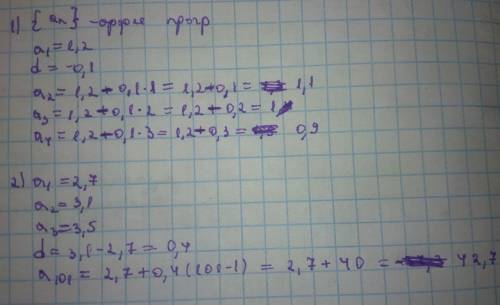 1) {an} - арифм прогр
a₁ = 1,2
d = -0,1
a₂ = 1,2 - 0,1·1 = 1,2 - 0,1 = 1,1
a₃ = 1,2 - 0,1·2 = 1,2 - 0,2 = 1
a₄ = 1,2 - 0,1·3 = 1,2 - 0,3 = 0,9
2) a₁ = 2,7
a₂ = 3,1
a₃ = 3,5
d = 3,1 - 2,7 = 0,4
a₁₀₁ = 2,7 + 0,4(101-1) = 2,7 + 40 = 42,7